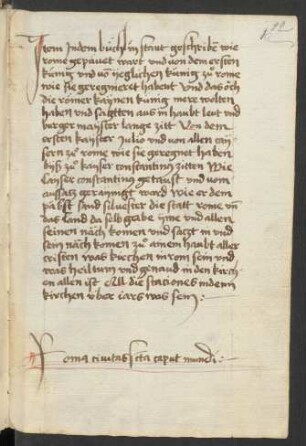 Item In dem büchlin staut geschriben wie
rome gepauet wart und von dem ersten
künig und von yeglichen künig zu rome
wie sie geregnieret habent Und das och
die römer kaynen künig mere wolten
haben und satzten aus in haubt leut und
burger mayster lange zitt Von dem
ersten kayser Julio und von allen cay
sern zu rome wie sie geregnet haben
biß zu kayser constantins zitten Wie
Cayser constantinus getauft und vom
aussatz geraynigt ward Wie er dem
pabst sand silvester die statt rome und
das land da selb gabe yme und allen
seinen nach komen und saczt in und
sein nach komen zu ainem haubt aller
cristen was kirchen in rom sein und
was heiltum und genaud in den kirch
en allen ist All die staciones in den
kirchen uber iars was sein :~
Roma civitas scta caput mundi :~